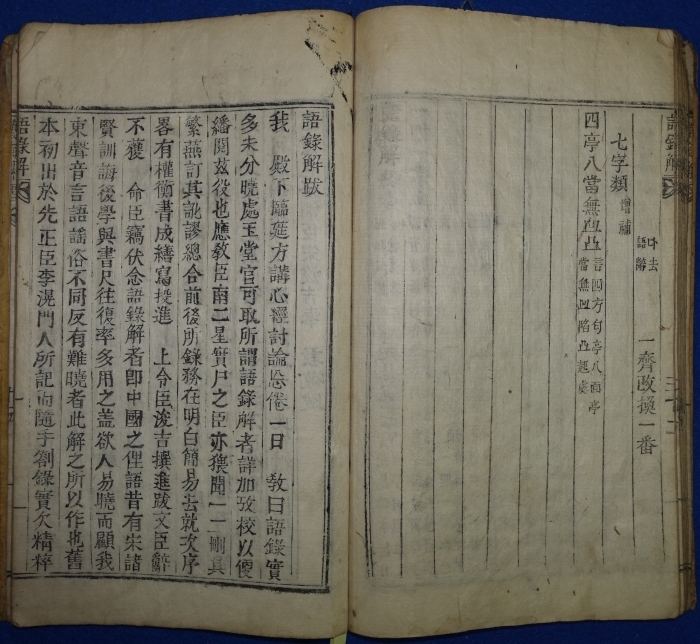 語錄解
七字類 增補
一齊改換一番
四亭八當無凹凸
言四方勻亭八面亭
當無凹陷凸起處
語錄解跋
我 殿下臨筵方講心經討論忘倦一日 敎曰語錄實
多未分曉處玉堂官可取所謂語錄解者詳加攷校以便
繙閱茲役也應敎臣南二星實尸之臣亦猥聞一一刪其
繁蕪訂其訛謬總合前後所錄務在明白簡易去就次序
畧有權衡書成繕寫投進 上令臣浚吉撰進跋文臣辭
不獲 命臣竊伏念語錄解者卽中國之俚語昔有宋諸
賢訓誨後學與書尺往復率多用之盖欲人易曉而顧我
東聲音言語謠俗不同反有難曉者此解之所以作也舊
本初出於先正臣李滉門人所記而隨手劄錄實欠精粹
語錄解